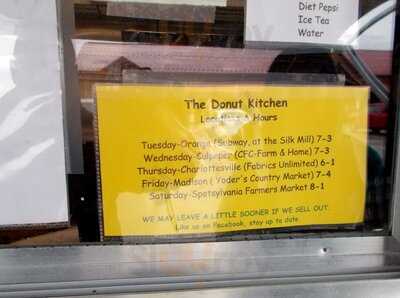 Diet Pepsi
Ice Tea
Water
The Donut Kitchen
Locations & Hours
Tuesday-Orange (Subway, at the Silk Mill) 7-3
Wednesday-Culpeper (CFC-Farm & Home) 7-3
Thursday-Charlottesville (Fabrics Unlimited) 6-1
Friday-Madison ( Yoder's Country Market) 7-4
Saturday-Spotsylvania Farmers Market 8-1
WE MAY LEAVE A LITTLE SOONER IF WE SELL OUT.
Like us on Facebook, stay up to date.